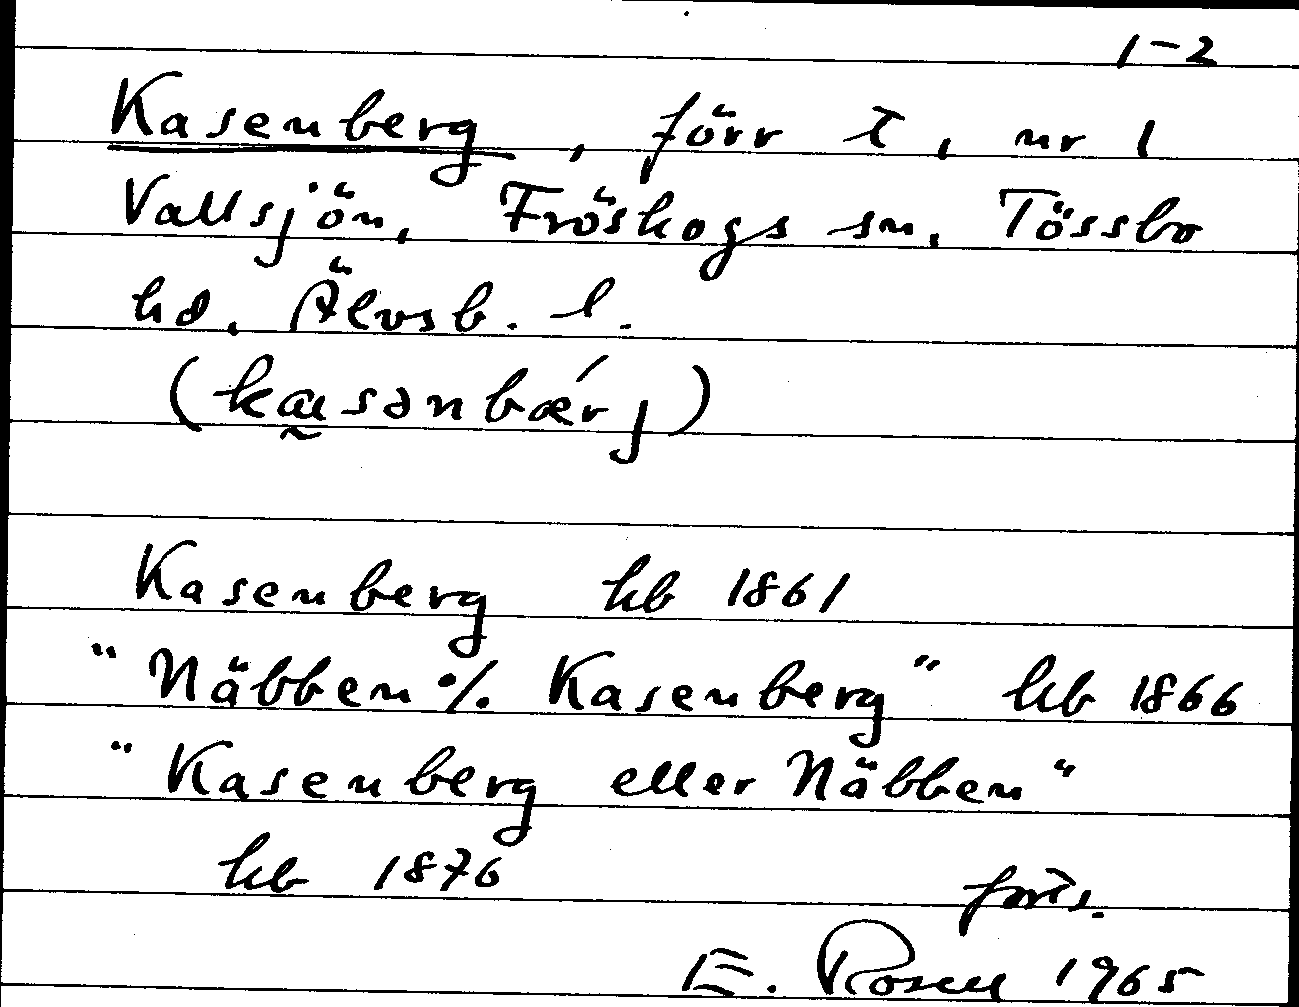 1-2
Kasenberg, förr t, nr 1
Vallsjön, Fröskogs sn, Tössbo
hd, Älvsb. l.
(kɑsənbæŕj)
Kasenberg hb 1861
"Näbben % Kasenberg" hb 1866
"Kasenberg eller Näbben"
hb 1876
forts.
E. Rosell 1965